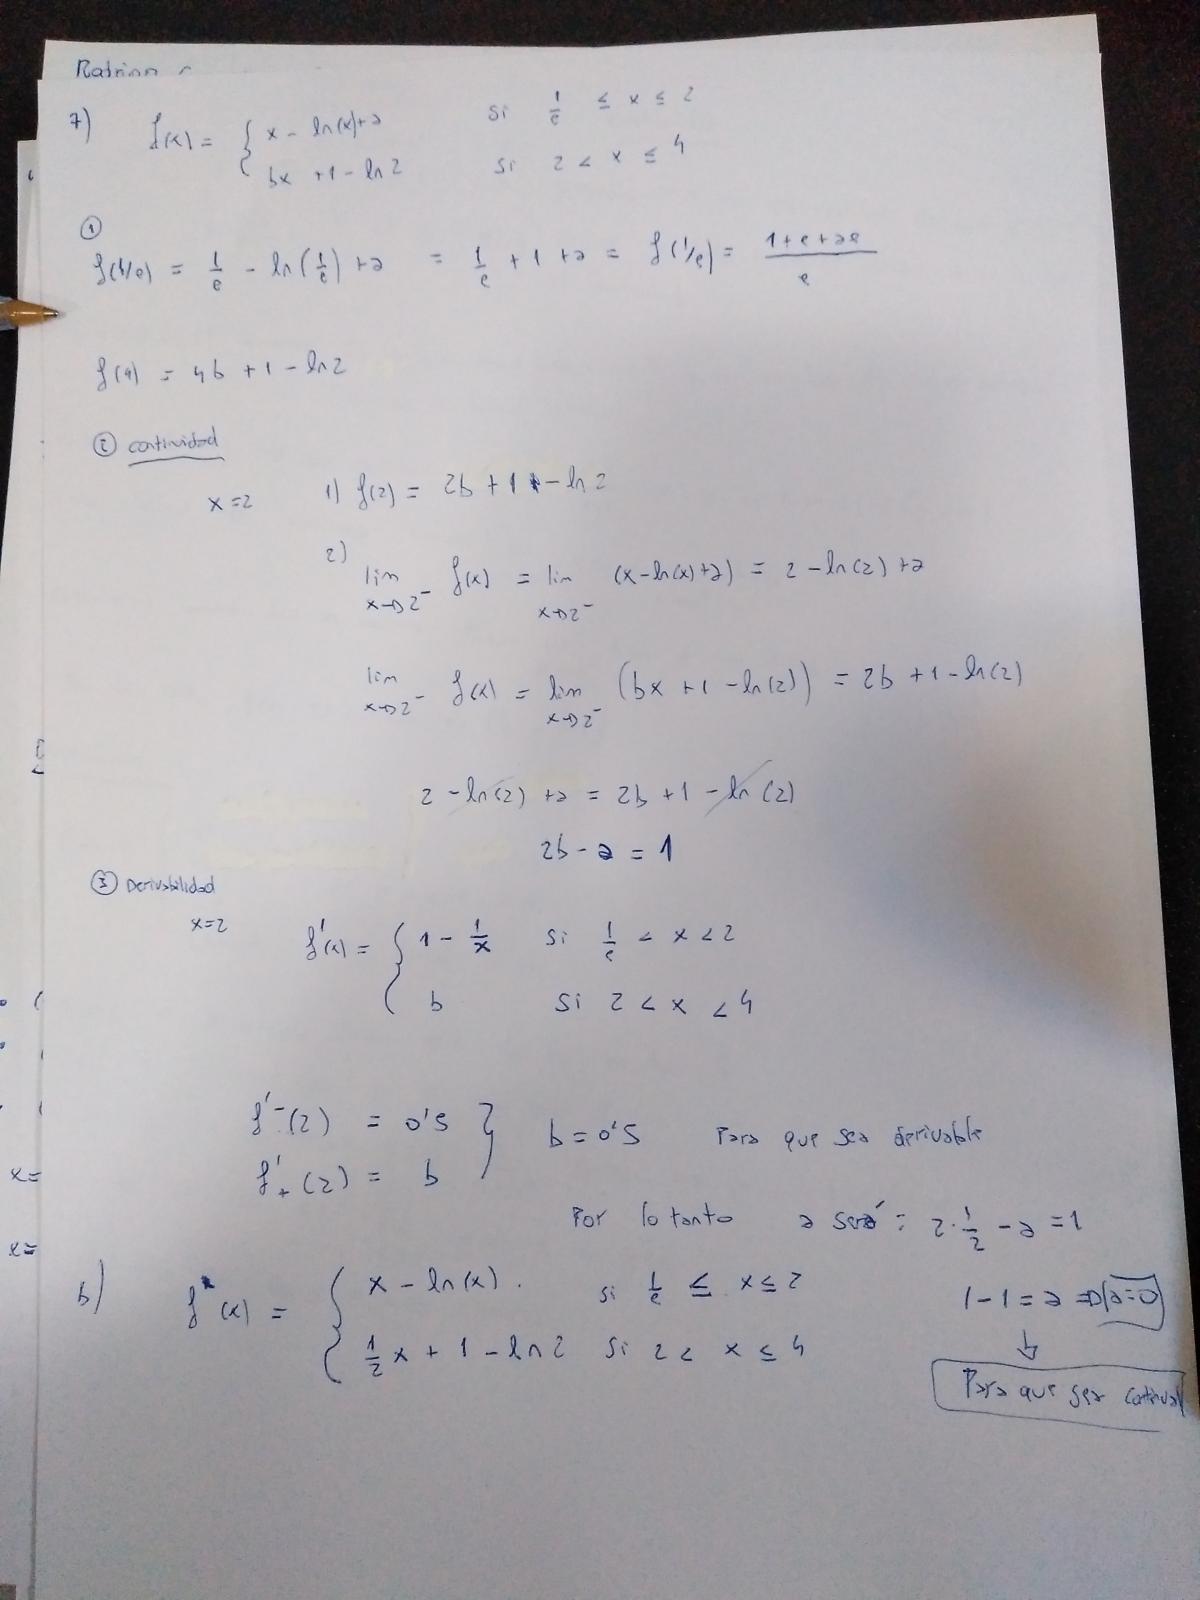 7) f(x) = { x - ln(x)+a si 1/e ≤ x ≤ 2
bx +1-ln2 si 2 < x ≤ 4
①
f(1/e) = 1/e - ln(1/e) +a = 1/e + 1 + a = f(1/e) = (1+e+ae)/e
f(4) = 4b +1-ln2
② continidad
x=2 1) f(2) = 2b + 1 - ln 2
2) lim x→2⁻ f(x) = lim x→2⁻ (x-ln(x)+a) = 2 -ln(2) +a
lim x→2⁻ f(x) = lim x→2⁻ (bx +1 -ln(2)) = 2b +1 -ln(2)
2 -ln(2) +a = 2b +1 -ln(2)
2b - a = 1
③ Derivabilidad
x=2 f'(x) = { 1 - 1/x si 1/e < x < 2
b si 2 < x < 4
f'⁻(2) = 0'5 } b = 0'5 Para que sea derivable
f'₊(2) = b
Por lo tanto a será: 2·1/2 - a = 1
b) f(x) = { x - ln(x). si 1/e ≤ x ≤ 2
1-1 = a ⇒ a=0
1/2 x + 1 - ln 2 si 2 < x ≤ 4
↓
Para que sea